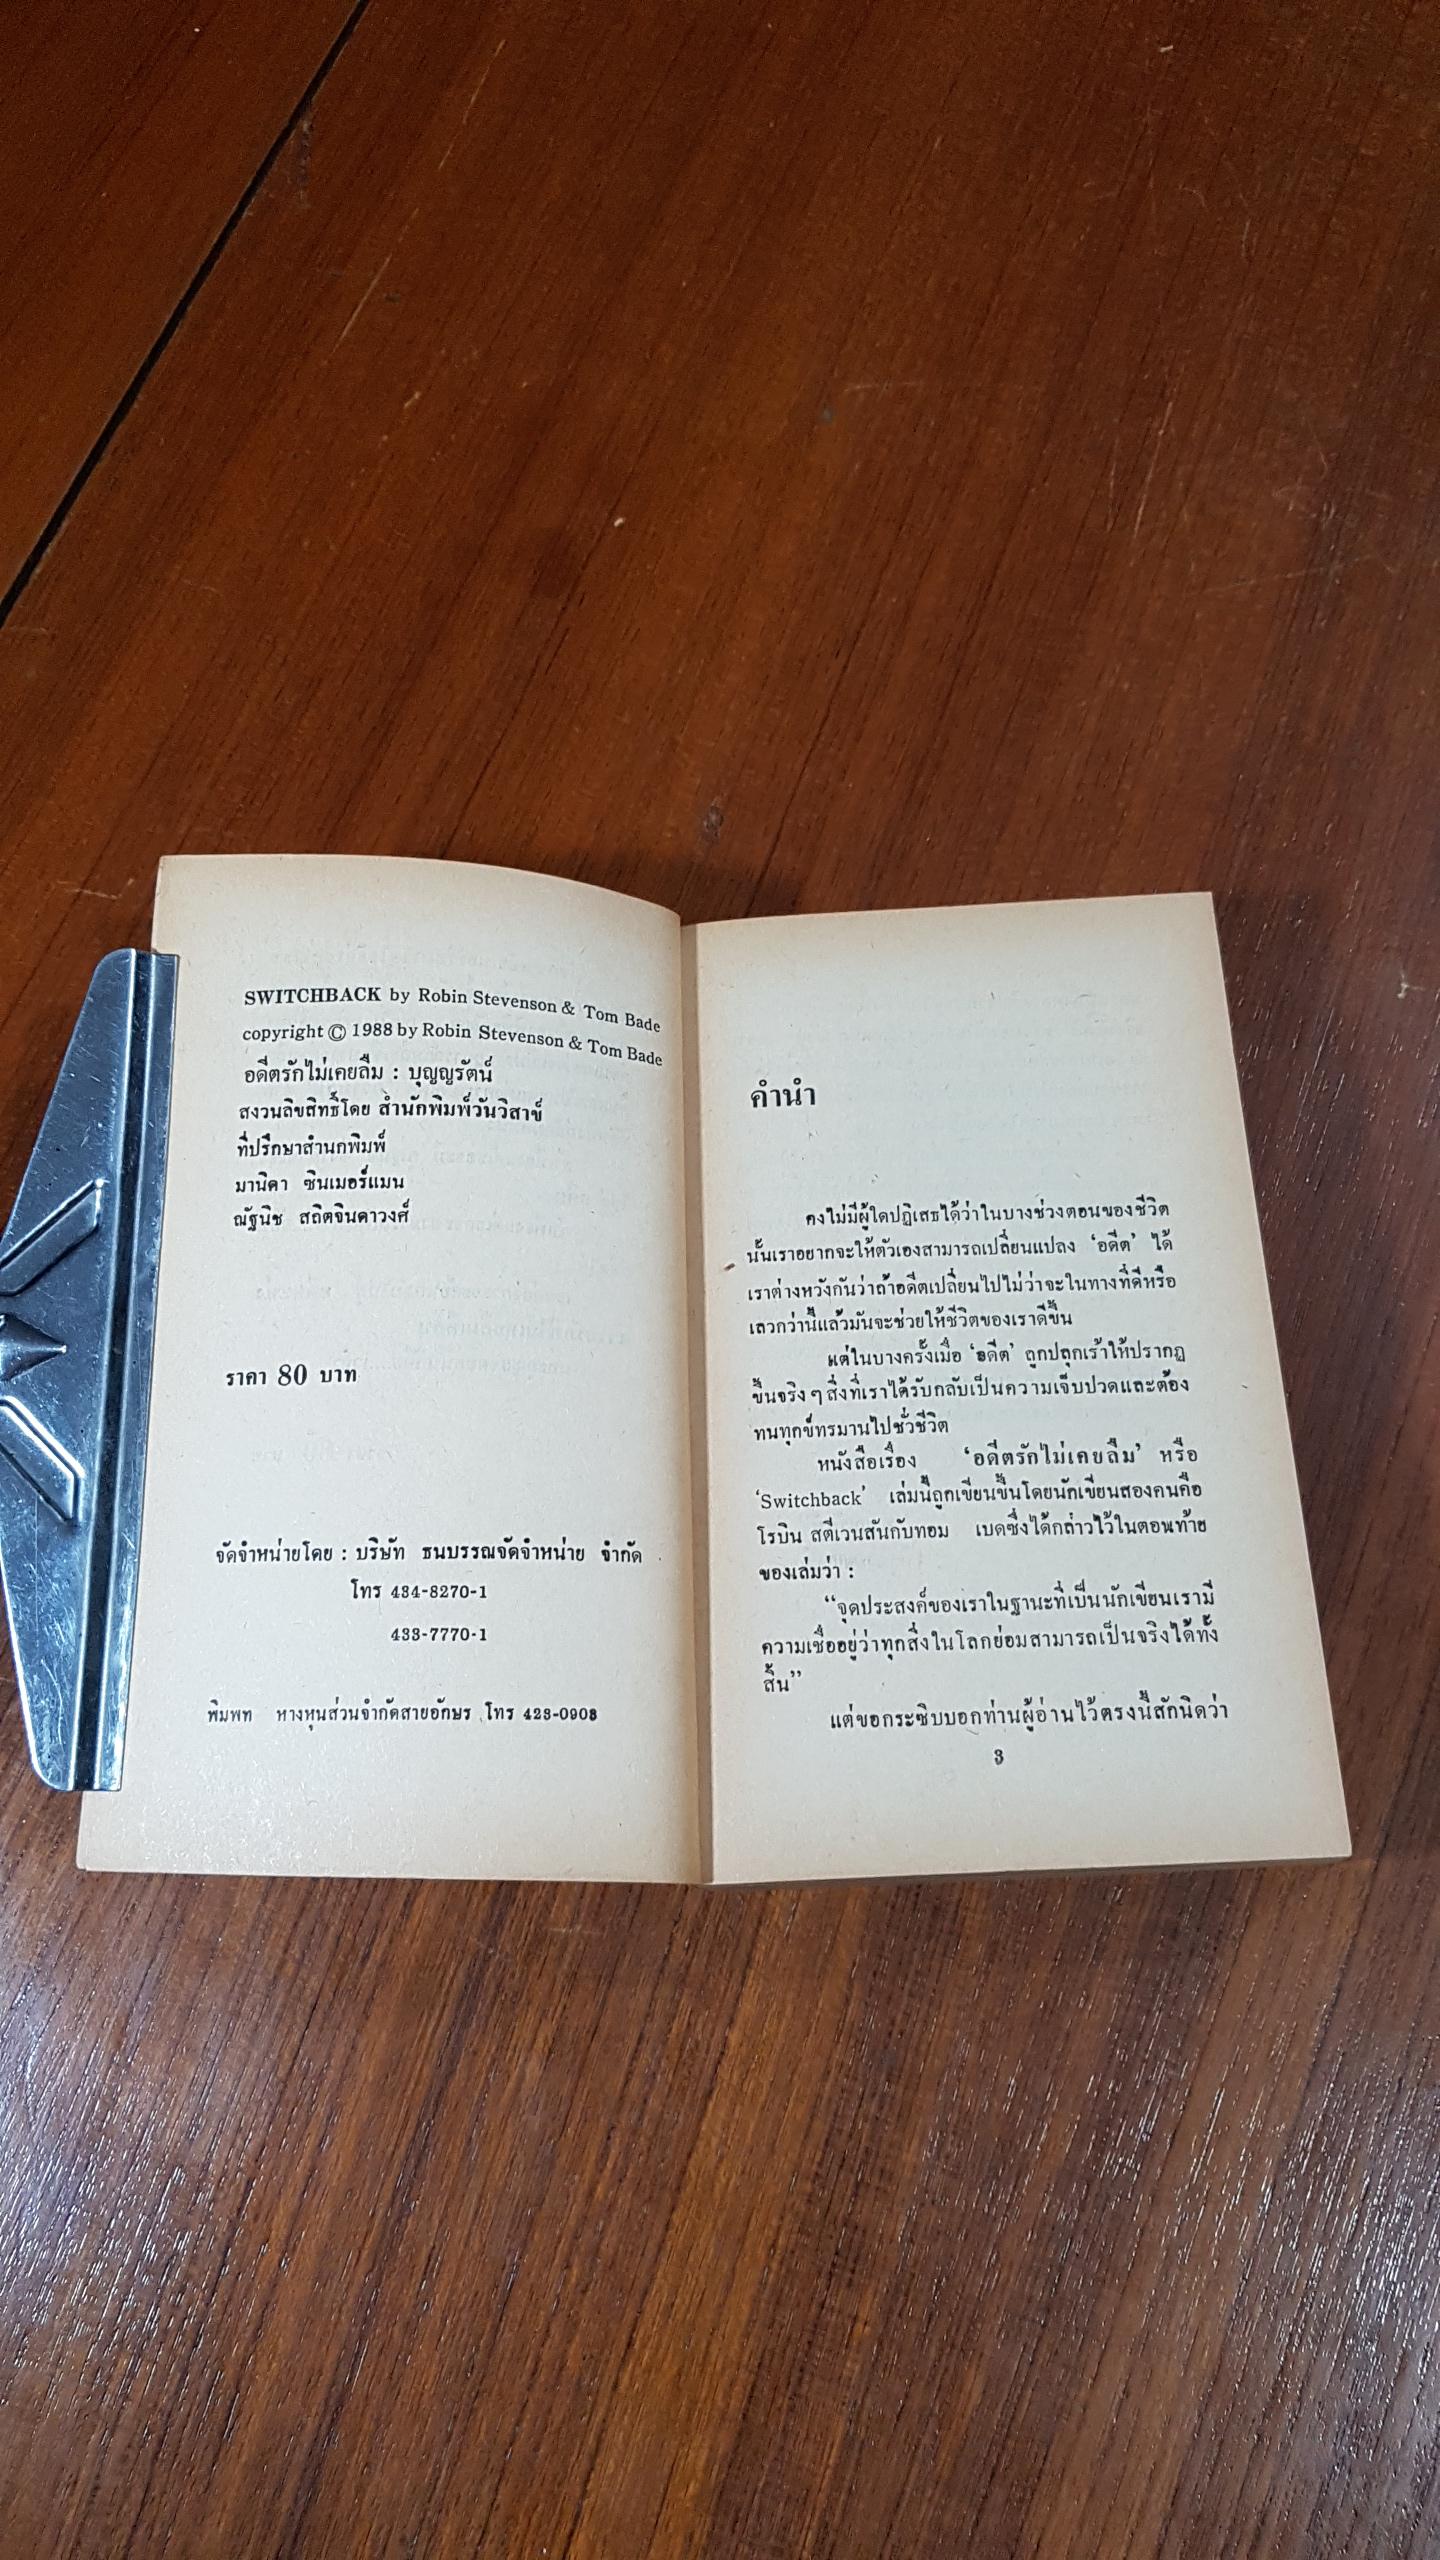 SWITCHBACK by Robin Stevenson & Tom Bade
copyright © 1988 by Robin Stevenson & Tom Bade
อดีตรักไม่เคยลืม : บุญญรัตน์
สงวนลิขสิทธิ์โดย สำนักพิมพ์วันวิสาข์
ที่ปรึกษาสำนกพิมพ์
มานิดา ซินเมอร์แมน
ณัฐนิช สถิตจินดาวงศ์
ราคา 80 บาท
จัดจำหน่ายโดย : บริษัท ธนบรรณจัดจำหน่าย จำกัด
โทร 434-8270-1
433-7770-1
พิมพท หางหุนส่วนจำกัดสายอักษร โทร 423-0908
คำนำ
คงไม่มีผู้ใดปฏิเสธได้ว่าในบางช่วงตอนของชีวิต
นั้นเราอยากจะให้ตัวเองสามารถเปลี่ยนแปลง ‘อดีต’ ได้
เราต่างหวังกันว่าถ้าอดีตเปลี่ยนไปไม่ว่าจะในทางที่ดีหรือ
เลวกว่านี้แล้วมันจะช่วยให้ชีวิตของเราดีขึ้น
แต่ในบางครั้งเมื่อ ‘อดีต’ ถูกปลุกเร้าให้ปรากฏ
ขึ้นจริง ๆ สิ่งที่เราได้รับกลับเป็นความเจ็บปวดและต้อง
ทนทุกข์ทรมานไปชั่วชีวิต
หนังสือเรื่อง ‘อดีตรักไม่เคยลืม’ หรือ
‘Switchback’ เล่มนี้ถูกเขียนขึ้นโดยนักเขียนสองคนคือ
โรบิน สตีเวนสันกับทอม เบดซึ่งได้กล่าวไว้ในตอนท้าย
ของเล่มว่า :
“จุดประสงค์ของเราในฐานะที่เป็นนักเขียนเรามี
ความเชื่ออยู่ว่าทุกสิ่งในโลกย่อมสามารถเป็นจริงได้ทั้ง
สิ้น”
แต่ขอกระซิบบอกท่านผู้อ่านไว้ตรงนี้สักนิดว่า
3